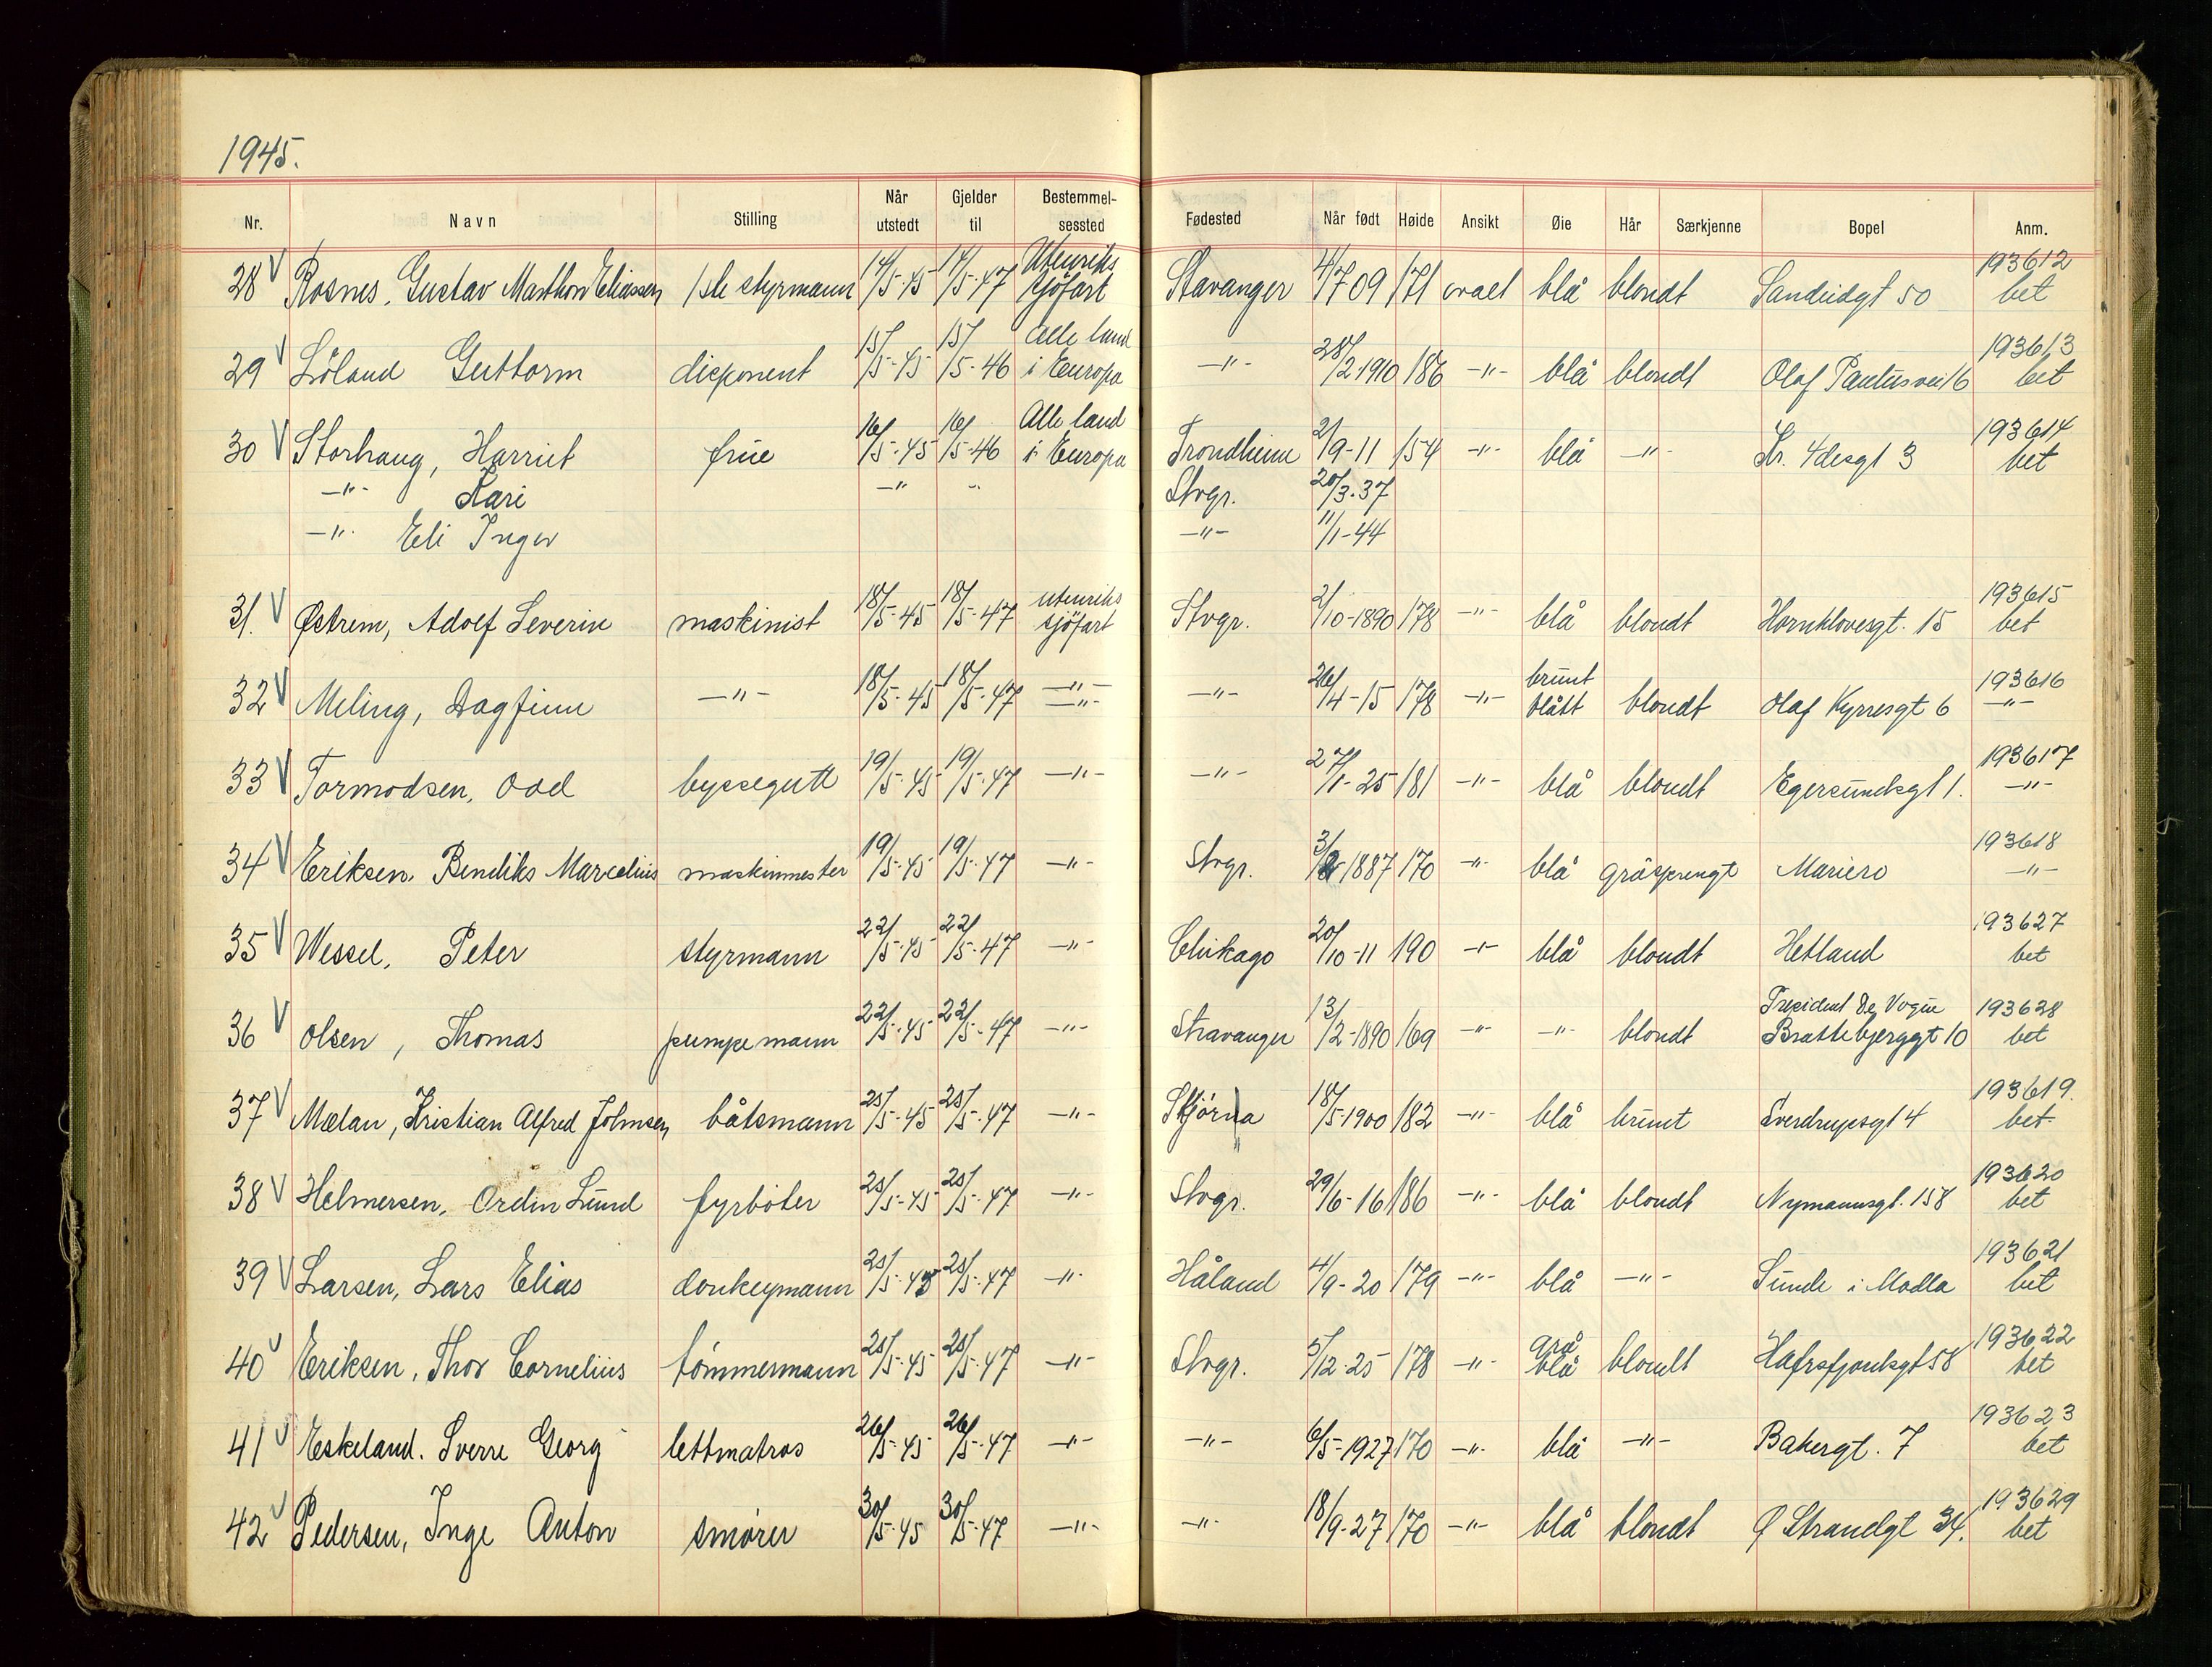 1945.
Nr. Navn Stilling Når utstedt Gjelder til Bestemmelsessted Fødested Når født Høide Ansikt Øie Hår Særkjenne Bopel Anm.
28 V Rosnes, Gustav Marthon Eliassen 1ste styrmann 14/5-45 14/5-47 Utenriks sjöfart Stavanger 4/7 09 171 ovalt blå blondt Sandeidgt 50 193612 bet
29 V Löland Guttorm disponent 15/5-45 15/5-46 Alle land i Europa -"- 28/2-1910 186 -"- blå blondt Olaf Paulusvei 16 193613 bet
30 V Storhaug, Harriet frue 16/5-45 16/5-46 Alle land i Europa Trondheim 2/9-11 154 -"- blå -"- Kr. 4desgt 3 193614 bet
-"- Kari -"- Stvgr. 20/3-37
-"- Eli Inger -"- 11/1-44
31. V Østrem, Adolf Severin maskinist 18/5-45 18/5-47 utenriks sjöfart Stvgr. 2/10-1890 178 -"- blå blondt Hornklovesgt. 15 193615 bet
32 V Meling, Dagfinn -"- 18/5-45 18/5-47 -"- -"- -"- 26/4-15 178 -"- brunt blått blondt Olaf Kyrresgt 6 193616 -"-
33 V Tormodsen, Odd byssegutt 19/5-45 19/5-47 -"- -"- 27/1-25 181 -"- blå blondt Egersundsgt 1. 193617 -"-
34 V Eriksen, Bendiks Marcelius maskinmester 19/5-45 19/5-47 -"- Stvgr. 1887 170 -"- blå gråsprengt Mariero 193618 -"-
35 V Wessel, Peter styrmann 22/5-45 22/5-47 -"- Chikago 20/10-11 190 -"- blå blondt Hetland 193627 bet
36 V Olsen, Thomas pumpemann 22/5-45 22/5-47 -"- Stravanger 13/2-1890 169 -"- -"- blondt President De Vogue Brattebjerggt 10 193628 bet
37 V Mælan, Kristian Alfred Johnsen båtsmann 25/5-45 25/5-47 -"- 18/5-1900 182 -"- blå brunt Sverdrupsgt 4 193619. bet
38 V Helmersen, Ordin Lund fyrböter 25/5-45 25/5-47 -"- Stvgr. 29/6-16 186 -"- blå blondt Nymannsgt. 158 193620 bet
39 V Larsen, Lars Elias donkeymann 25/5-45 25/5-47 -"- Håland 4/9-20 179 -"- blå -"- Sunde i Madla 193621 bet
40 V Eriksen, Thor Cornelius tömmermann 25/5-45 25/5-47 -"- Stvgr. 5/12-25 178 -"- grå blå blondt Hafrsfjordsgt 58 193622 bet
41 V Eskeland. Sverre Georg lettmatros 26/5-45 26/5-47 -"- -"- 6/5-1927 170 -"- blå -"- Bakergt. 7 193623 bet
42 V Pedersen, Inge Anton smører 30/5-45 30/5-47 -"- -"- 18/9-27 170 -"- blå blondt Ø Strandgt 34. 193629 bet